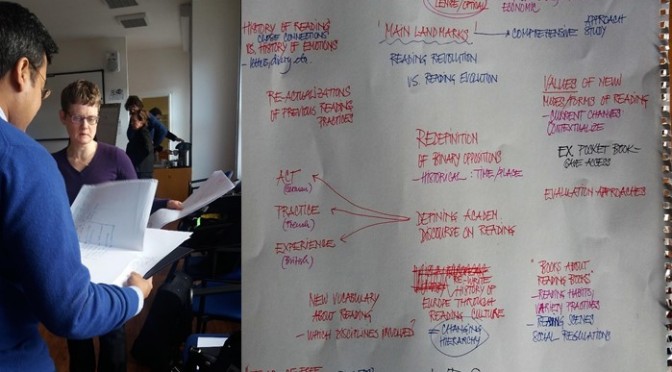 HISTORY OF READING
CLOSE CONNECTIONS
VS. HISTORY OF EMOTIONS
RE-ACTUALIZATIONS
OF PREVIOUS READING
PRACTICES
ACT
(German)
PRACTICE
(French)
EXPERIENCE
(British)
NEW VOCABULARY
ABOUT READING
- WHICH DISCIPLINES INVOLVED?
ECONOMIC
"MAIN LANDMARKS"
COMPREHENSIVE
APPROACH
STUDY
READING REVOLUTION
VS READING EVOLUTION
REDEFINITION
OF BINARY OPPOSITIONS
- HISTORICAL: TIME/PLACE
DEFINING ACADEM.
DISCOURSE ON READING
RE-WRITE
HISTORY OF
EUROPE THROUGH
READING CULTURE
- CHANGING
HIERARCHY
VALUES OF NEW
MODES/FORMS OF READING
- CURRENT CHANGES
CONTEXTUALIZE
EX. POCKET BOOK -
GAVE ACCESS
EVALUATION APPROACHES
"BOOKS ABOUT
READING BOOKS"
- READING HABITS,
VARIETY PRACTICES
- READING SCENES
SOCIAL REGULATIONS